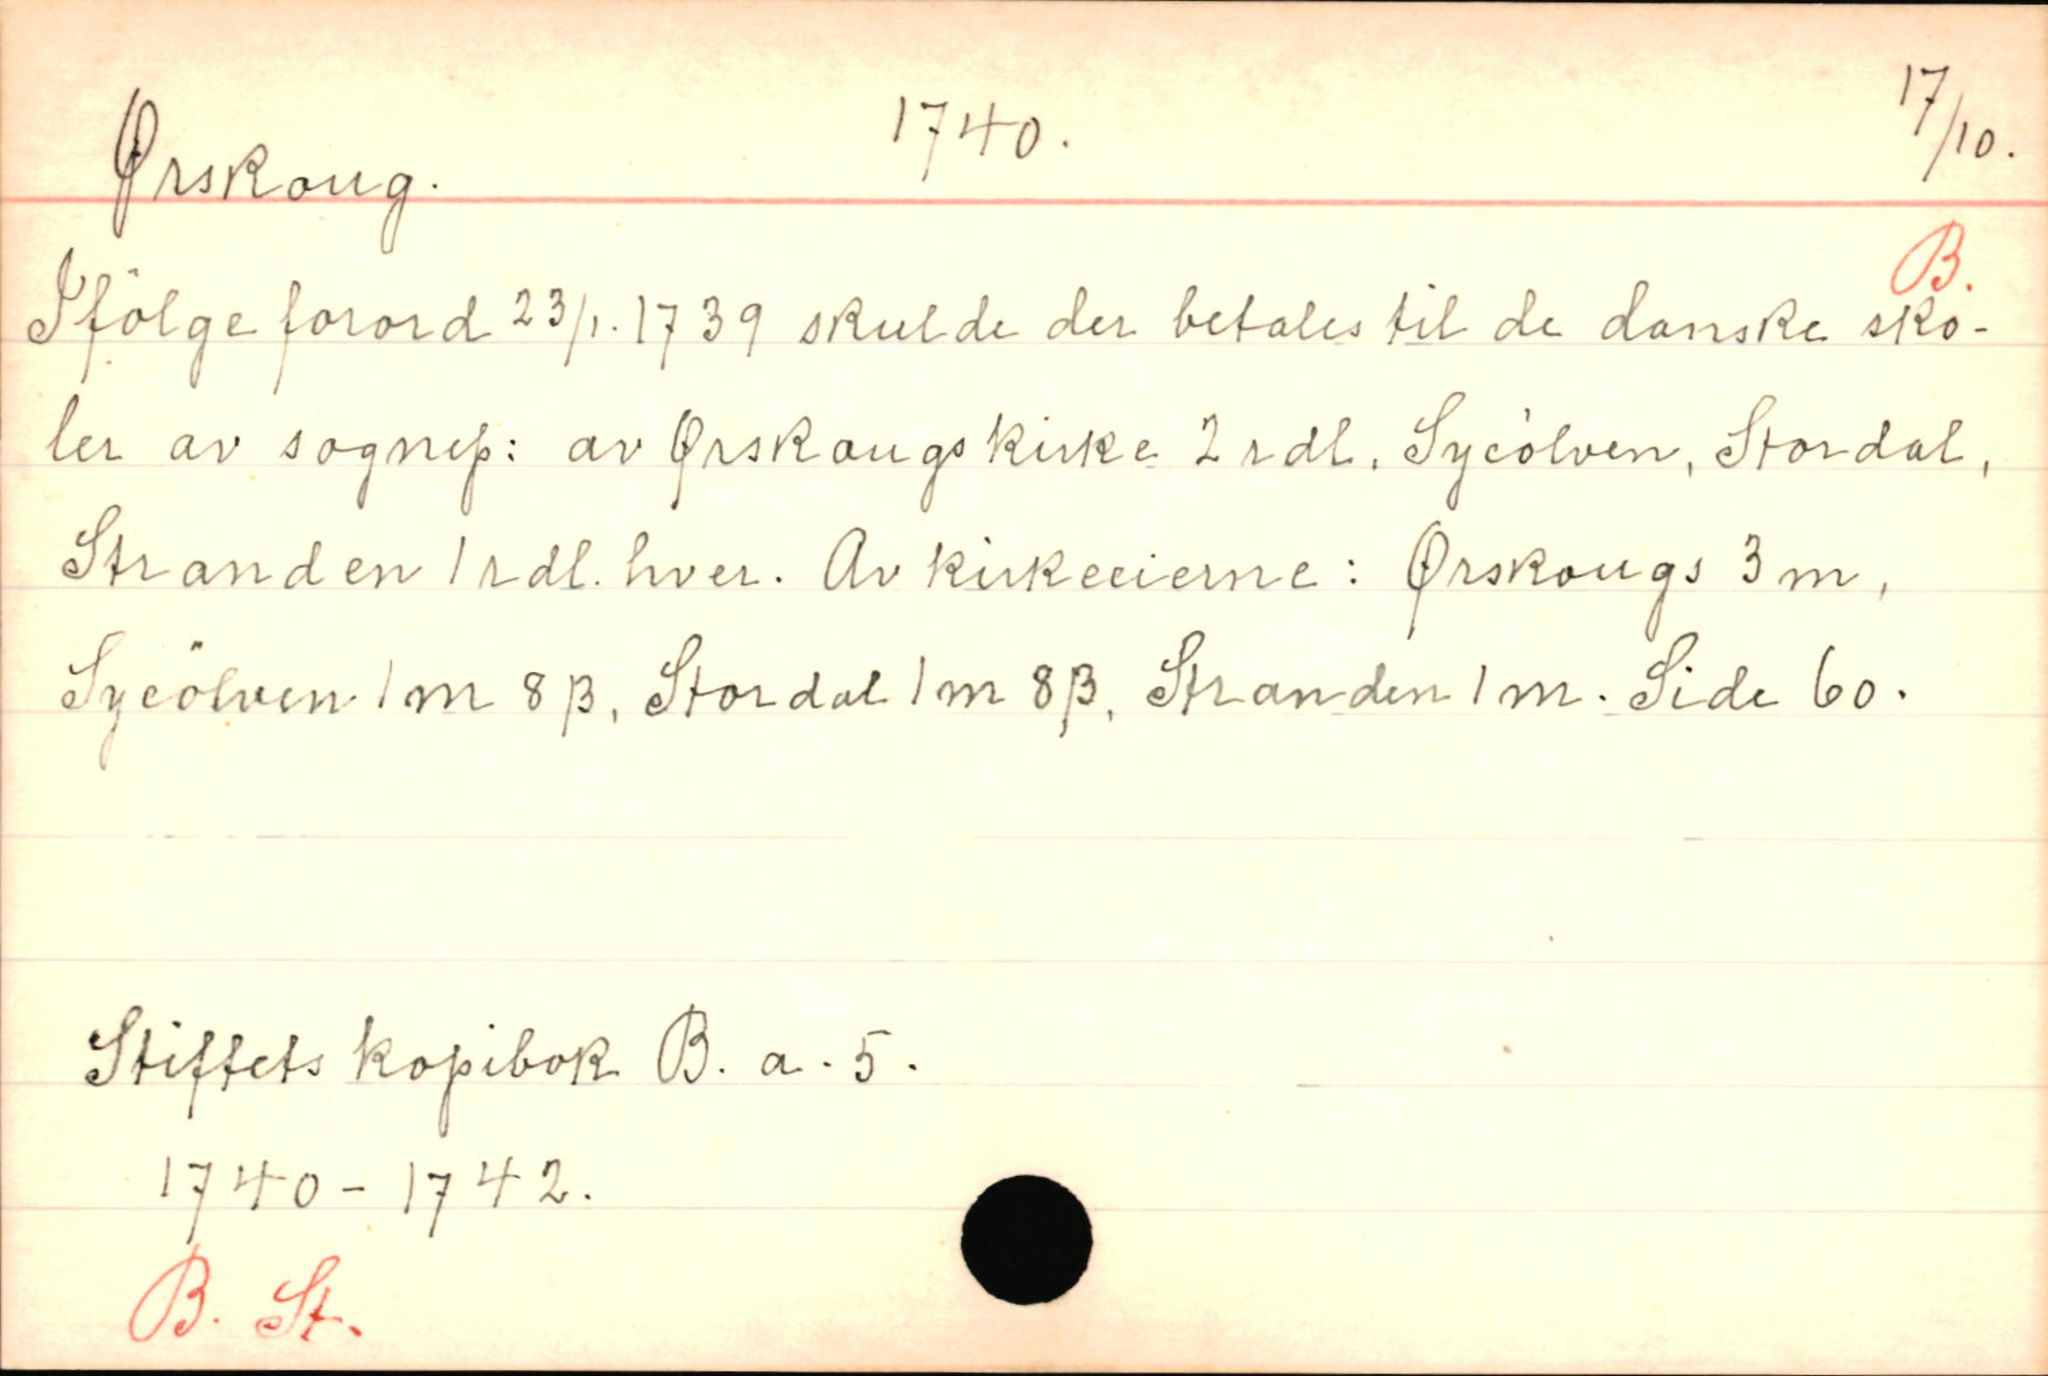 Ørskoug. 1740. 17/10.
B.
Ifölge forord 23/1. 1739 skulde der betales til de danske sko-
ler av sognep: av Ørskougs kirke 2 rdl. Sycölven, Stordal,
Stranden 1 rdl. hver. Av kirkeeierne: Ørskougs 3 m,
Sycölven 1 m 8 β, Stordal 1 m 8 β, Stranden 1 m. Side 60.
Stiftets kopibok B. a. 5.
1740 - 1742.
B. St.